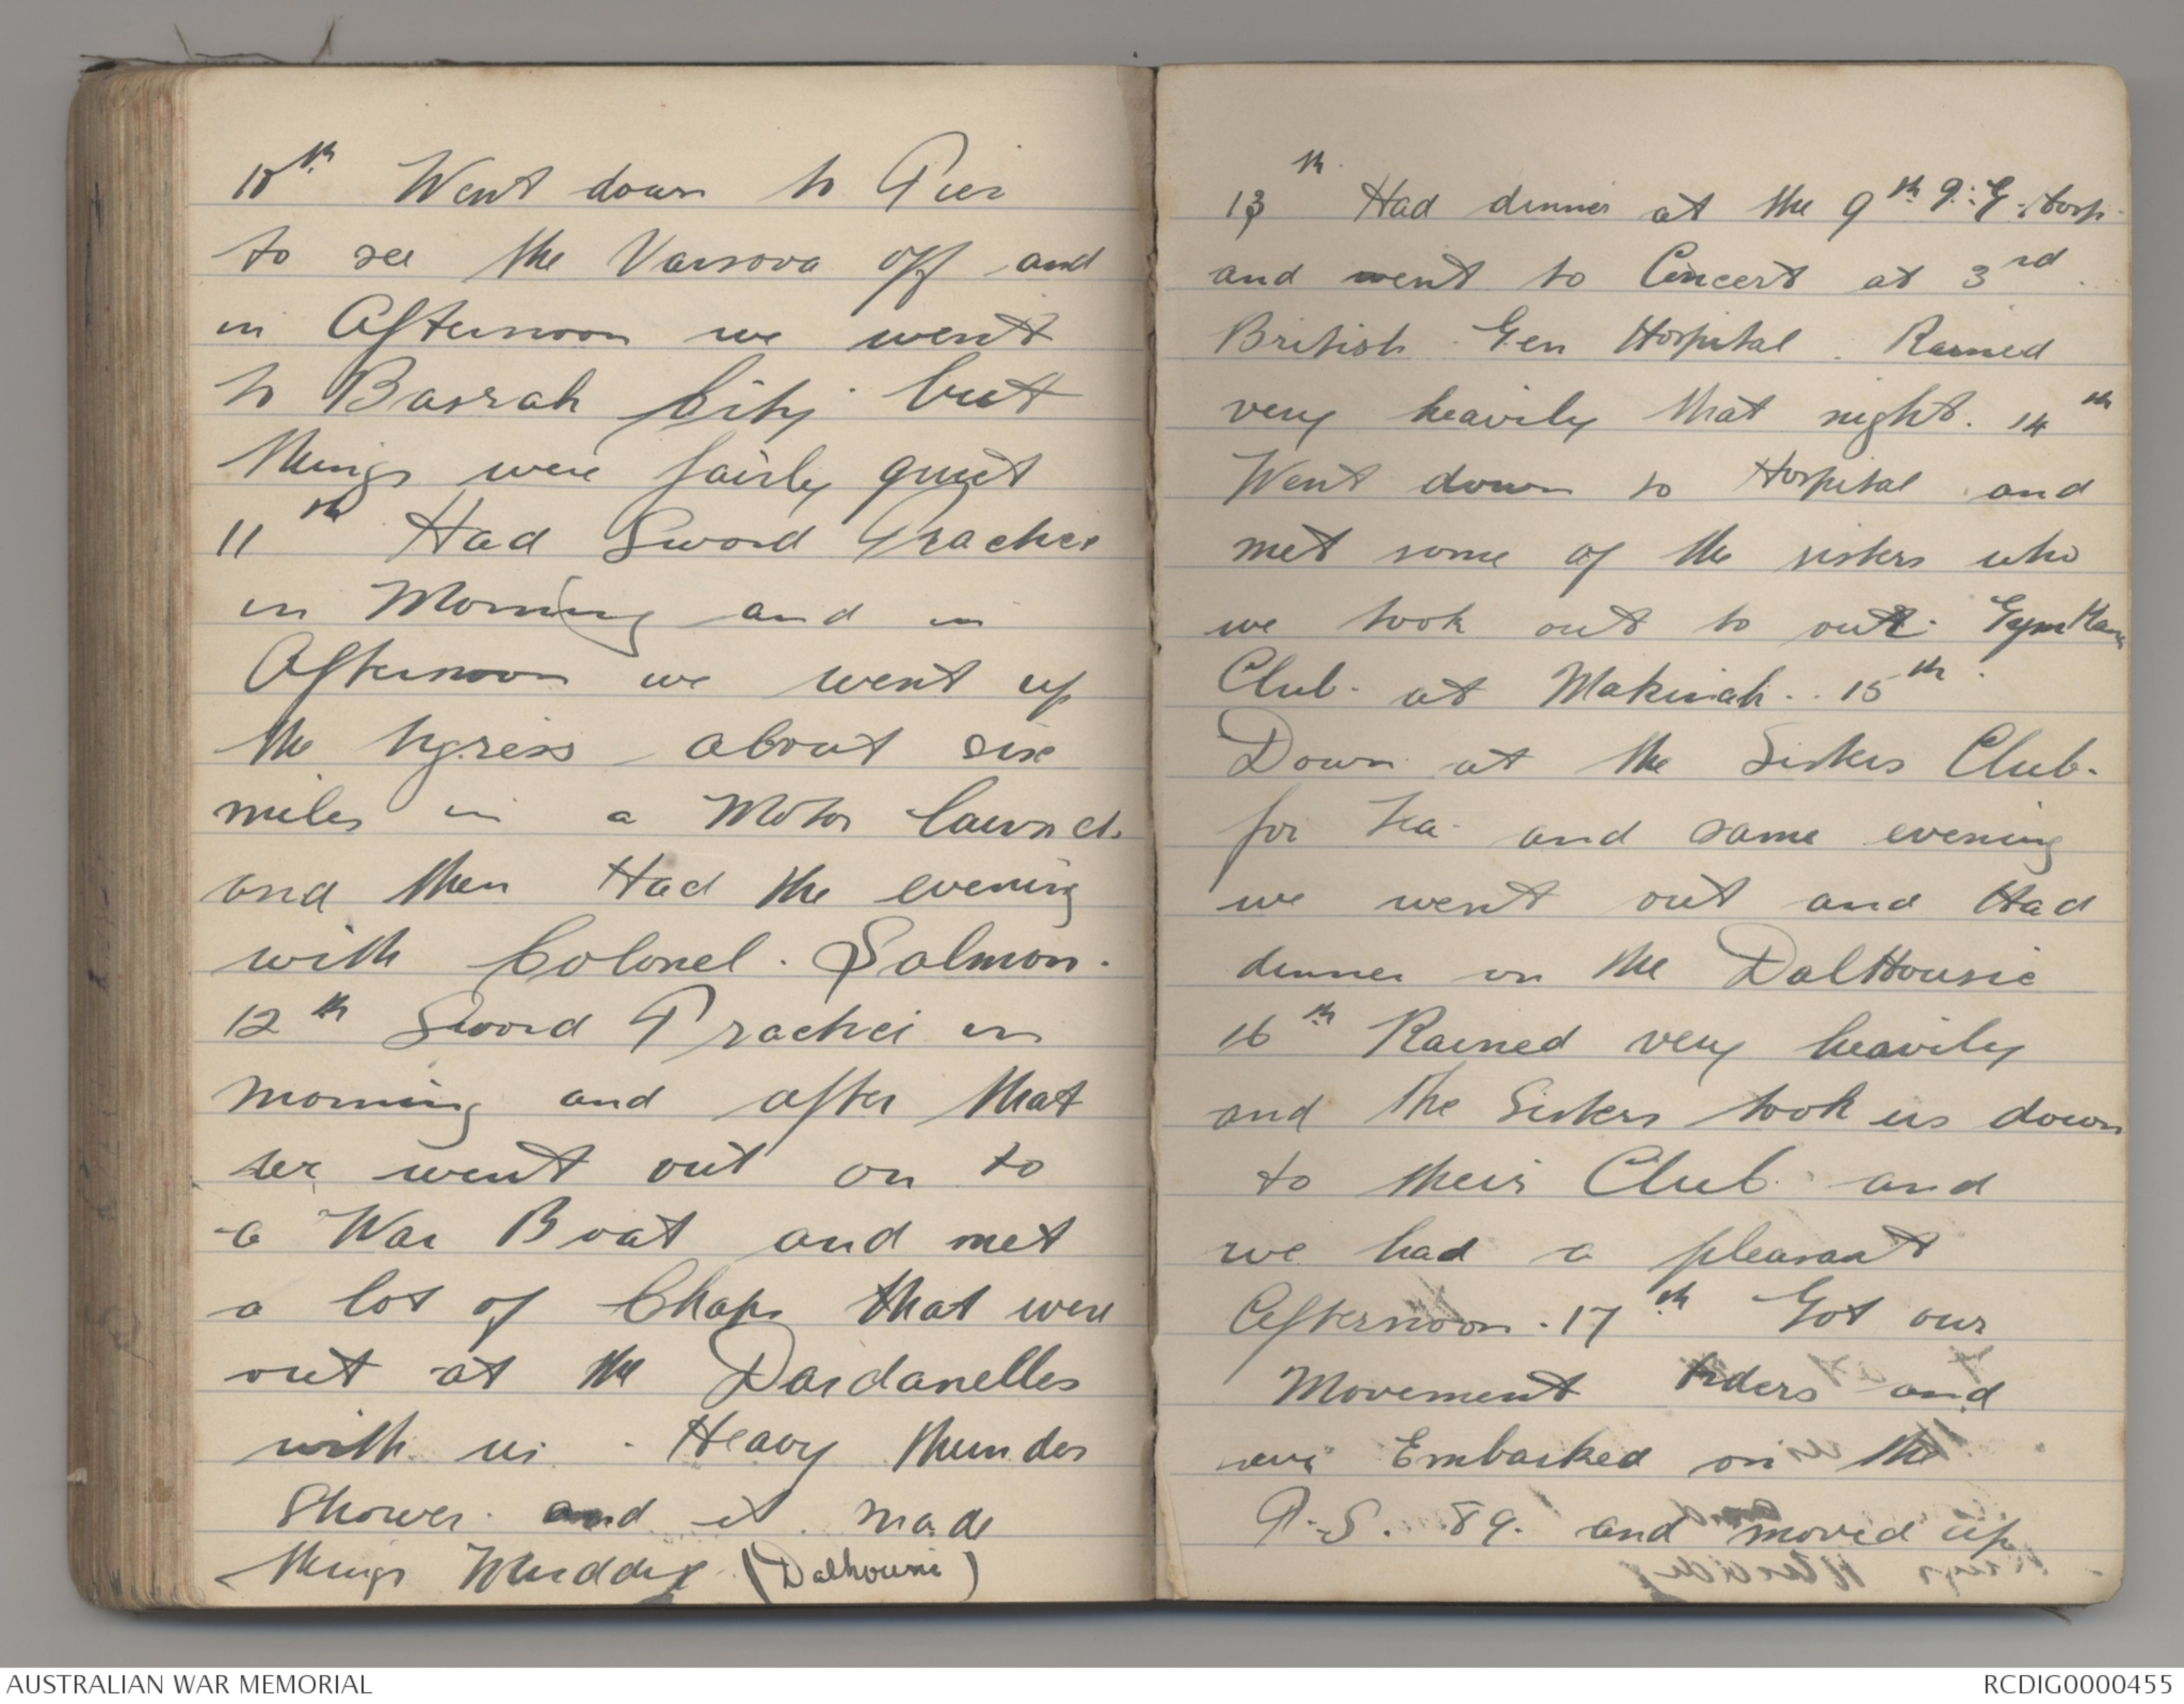 10th Went down to Pier
to see the Varsova off and
in Afternoon we went
to Basrah City but
things were fairly quiet
11th Had Sword Practice
in Morning and in
Afternoon we went up
the Tigress about six
miles in a Motor launch
and then Had the evening
with Colonel. Salmon.
12th Sword Practice in
morning and after that
we went out on to
a War Boat and met
a lot of Chaps that were
out at the Dardanelles
with us. Heavy thunder
Shower and it made
things Muddy (Dalhousie)
13th Had dinner at the 9th I. G. Hosp
and went to Concert at 3rd
British Gen Hospital. Rained
very heavily that night. 14th
Went down to Hospital and
met some of the sisters who
we took out to our
Club. at Makinah. 15th
Down at the Sisters Club.
for Tea and same evening
we went out and Had
dinner on the DalHousie
16th Rained very heavily
and the Sisters took us down
to their Club and
we had a pleasant
Afternoon. 17th Got our
Movement Orders and
Embarked on the
P.S. 89. and moved up
AUSTRALIAN WAR MEMORIAL
RCDIG0000455